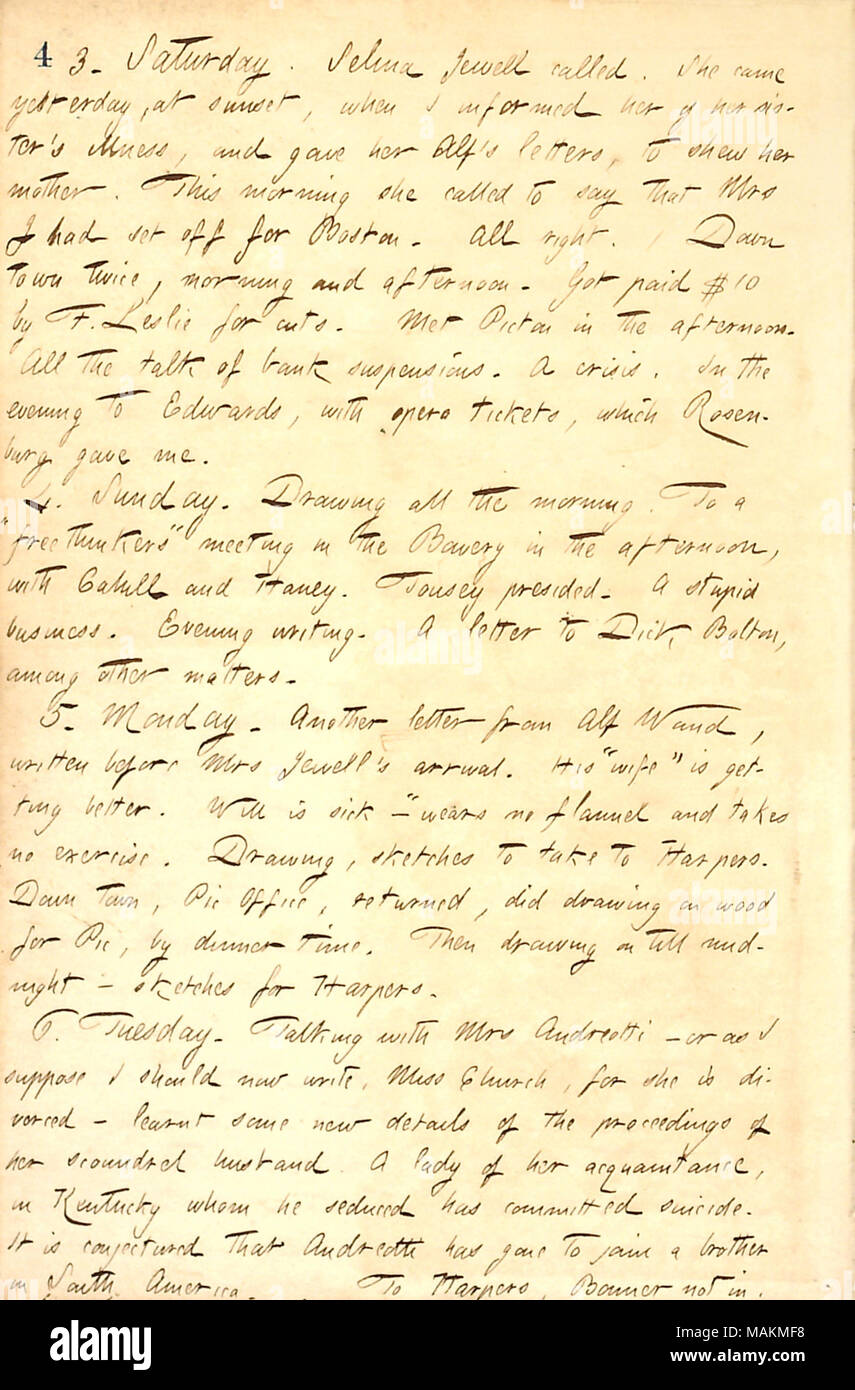 4 3. Saturday. Selina Jewell called. She came
yesterday, at sunset, when I informed her of her sis-
ter's illness, and gave her Alf's letters, to shew her
mother. This morning she called to say that Mrs
J had set off for Boston. All right. / Down
town twice, morning and afternoon. Got paid $10
by F. Leslie for cuts. Met Picton in the afternoon.
All the talk of bank suspensions. A crisis. In the
evening to Edwards, with opera tickets, which Rosen-
burg gave me.
4. Sunday. Drawing all the morning. To a
"freethinkers" meeting in the Bowery in the afternoon,
with Cahill and Haney. Tousey presided. A stupid
business. Evening writing. A letter to Dick Bolton,
among other matters.
5. Monday. Another letter from Alf Waud,
written before Mrs Jewell's arrival. His "wife" is get-
ting better. Will is sick - "wears no flannel and takes
no exercise. Drawing, sketches to take to Harpers.
Down town, Pic Office, returned, did drawing on wood
for Pic, by dinner time. Then drawing on till mid-
night - sketches for Harpers.
6. Tuesday. Talking with Mrs Andreotti - or as I
suppose I should now write, Miss Church, for she is di-
vorced - learnt some new details of the proceedings of
her scoundrel husband. A lady of her acquaintance,
in Kentucky whom he seduced has committed suicide.
It is conjectured that Andreotti has gone to join a brother
in South America. To Harpers, Bonner not in.
alamy
Image ID: MAKMF8
www.alamy.com